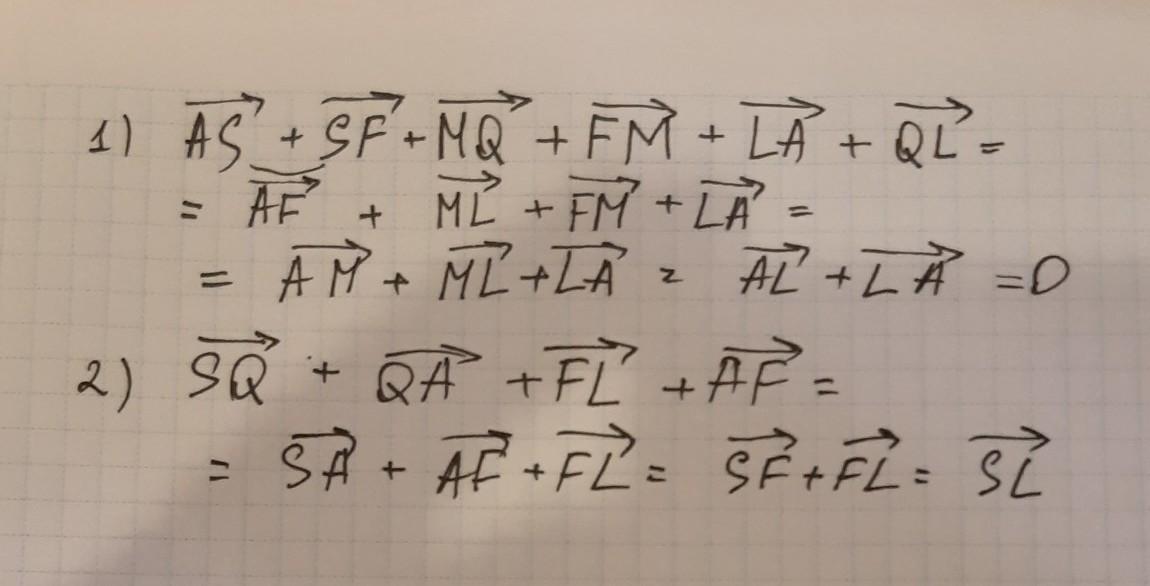 1) $\overrightarrow{AS} + \overrightarrow{SF} + \overrightarrow{MQ} + \overrightarrow{FM} + \overrightarrow{LA} + \overrightarrow{QL} =$
$= \overrightarrow{AF} + \overrightarrow{ML} + \overrightarrow{FM} + \overrightarrow{LA} =$
$= \overrightarrow{AM} + \overrightarrow{ML} + \overrightarrow{LA} = \overrightarrow{AL} + \overrightarrow{LA} = 0$
2) $\overrightarrow{SQ} + \overrightarrow{QA} + \overrightarrow{FL} + \overrightarrow{AF} =$
$= \overrightarrow{SA} + \overrightarrow{AF} + \overrightarrow{FL} = \overrightarrow{SF} + \overrightarrow{FL} = \overrightarrow{SL}$